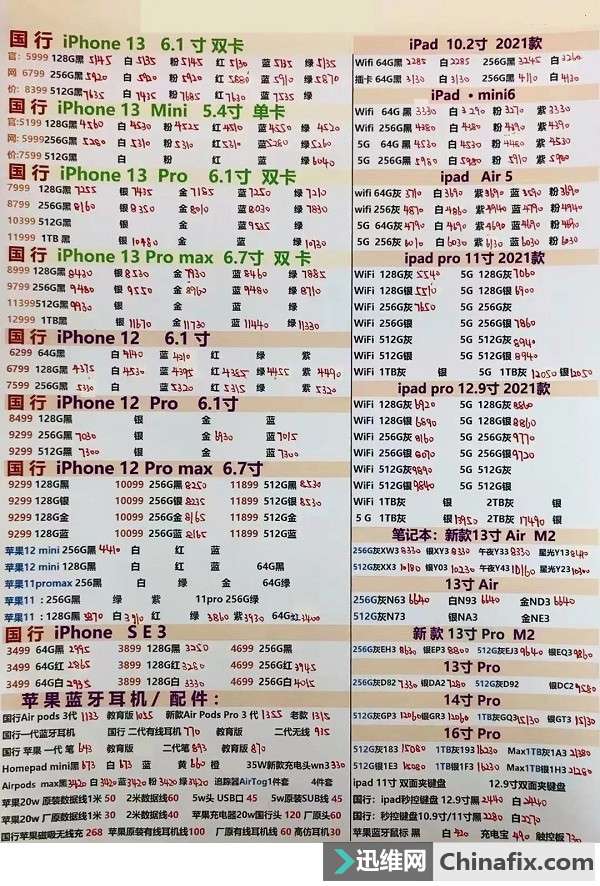 国行 iPhone 13 6.1寸 双卡
官: 5999 128G黑 5145 白 5135 粉 5145 红 5130 蓝 5135 绿 5135
网 6799 256G黑 5920 白 5920 粉 5920 红 5880 蓝 5910 绿 5870
价: 8399 512G黑 7635 白 7435 粉 7685 红 7630 蓝 7535 绿
国行 iPhone 13 Mini 5.4寸 单卡
官:5199 128G黑 4560 白 4530 粉 4525 红 4510 蓝 4520 绿 4520
网: 5999 256G黑 5280 白 5310 粉 5310 红 5310 蓝 5280 绿 5260
价:7599 512G黑 白 粉 红 蓝 绿 6040
国行 iPhone 13 Pro 6.1寸 双卡
7999 128G黑 7255 银 7435 金 7185 蓝 7250 绿 7210
8799 256G黑 8160 银 8350 金 8010 蓝 8030 绿 7830
10399 512G黑 银 金 蓝 绿
11999 1TB 黑 银 10480 金 蓝 绿 10130
国行 iPhone 13 Pro max 6.7寸 双卡
8999 128G黑 8430 银 8530 金 7930 蓝 8460 绿 7885
9799 256G黑 9480 银 9550 金 8960 蓝 9480 绿 8710
11399 512G黑 9930 银 金 蓝 绿
12999 1TB黑 银 11670 金 11730 蓝 11440 绿 11330
国行 iPhone 12 6.1寸
6299 64G黑 白 4140 蓝 4310 红 绿 紫
6799 128G黑 4375 白 4530 蓝 4395 红 4385 绿 4455 紫 4490
7599 256G黑 5310 白 蓝 5320 红 5315 绿 5320 紫
国行 iPhone 12 Pro 6.1寸
8499 128G黑 银 金 蓝
9299 256G黑 7030 银 金 6930 蓝 7015
9299 512G黑 7300 银 金 蓝
国行 iPhone 12 Pro max 6.7寸
9299 128G黑 10099 256G黑 8250 11899 512G黑 8230
9299 128G银 10099 256G银 8235 11899 512G银 8230
9299 128G金 10099 256G金 8165 11899 512G金
9299 128G蓝 10099 256G蓝 8165 11899 512G蓝
苹果12 mini 256G黑 4410 白 红 蓝
苹果12 mini 128G黑 白 红 蓝 64G黑
苹果11promax 256黑 白 绿 64G绿
苹果11 : 256G黑 绿 紫 11pro 256G绿
苹果11 : 128G黑 3870 白 3910 红 绿 3860 紫 3930 64G红 3400
国行 iPhone S E 3
3499 64G黑 2995 3899 128G黑 3250 4699 256G黑
3499 64G红 2865 3899 128G红 3280 4699 256G红 3945
3499 64G白 2935 3899 128G白 4699 256G白 4015
苹果蓝牙耳机/ 配件 :
国行Air pods 3代 1133 教育版 1025 新款Air Pods Pro 3 代 1355 老款 1315
国行一代蓝牙耳机 国行 二代有线耳机 770 二代无线 915
国行 苹果 一代 笔 643 教育版 二代笔 893 教育版 870
Homepad mini黑 673 白 673 蓝 黄 660 橙 35W新款充电头wn3 330
Airpods max黑 3420 白 3420 蓝 3420 粉 3420 绿 3420 追踪器AirTog1件套 4件套
苹果20w 原装数据线1米 50 2米数据线60 5w头 USB口 45 5w原装SUB线 45
苹果20w 厂原数据线1米 30 2米数据线40 苹果充电器20w国行头 120 厂原头 60
国行苹果磁吸无线充 268 苹果原装有线耳机线100 厂原有线耳机线 60 高仿耳机 30
iPad 10.2寸 2021款
Wifi 64G黑 2285 白 2285 256G黑 3245 白 3260
插卡 64G黑 3130 白 3130 256G黑 4110 白 4130
iPad · mini6
Wifi 64G黑 3330 白 3290 粉 3270 紫 3330
Wifi 256G黑 4380 白 4380 粉 4390 紫 4390
5G 64G黑 4530 白 4530 粉 4530 紫 4530
5G 256G黑 5980 白 5980 粉 5910 紫 5980
ipad Air 5
wifi 64G灰 3710 白 3690 紫 3690 蓝 3590 粉 3690
wifi 256灰 4870 白 4860 紫 4940 蓝 4790 粉 4940
5G 64G灰 4790 白 4790 紫 4790 蓝 4690 粉 4690
5G 256灰 6010 白 6030 紫 6130 蓝 6030 粉 6030
ipad pro 11寸 2021款
WiFi 128G灰 5540 5G 128G灰 7060
WiFi 128G银 5510 5G 128G银 6900
WiFi 256G灰 7650 5G 256G灰
WiFi 256G银 5G 256G银 7860
WiFi 512G灰 5G 512G灰 8940
WiFi 512G银 5G 512G银 8940
WiFi 1TB灰 银 5G 1TB灰 12050 银 12050
ipad pro 12.9寸 2021款
WiFi 128G灰 6920 5G 128G灰 8860
WiFi 128G银 6890 5G 128G银 8860
WiFi 256G灰 8160 5G 256G灰 9770
WiFi 256G银 8070 5G 256G银 9720
WiFi 512G灰 9890 5G 512G灰
WiFi 512G银 9840 5G 512G银
WiFi 1TB灰 银 2TB灰 银
5 G 1TB灰 银 13950 2TB灰 17490 银
笔记本: 新款13寸 Air M2
256G灰XW3 8330 银XY3 8330 午夜Y33 8330 星光Y13 8410
512G灰XX3 10180 银Y03 10230 午夜Y43 10160 星光Y23 10300
13寸 Air
256G灰N63 6640 白N93 6640 金ND3 6640
512G灰N73 银NA3 金NE3
新款 13寸 Pro M2
256G灰EH3 8630 银EP3 8800 512G灰EJ3 9640 银EQ3 9860
13寸 Pro
256G灰D82 7330 银DA2 7280 512G灰D92 银DC2 9580
14寸 Pro
512G灰GP3 12060 银GR3 12060 1TB灰GQ3 15130 银GT3 15130
16寸 Pro
512G灰183 15080 1TB灰193 16230 Max1TB灰1A3 21380
512G银1E3 15080 1TB银1F3 16230 Max1TB银1H3 21280
ipad 11寸 双面夹键盘 12.9寸双面夹键盘
国行: ipad秒控键盘 12.9寸黑 2440 白 2440
国行: ipad秒控键盘10.9寸/11寸黑 2280 白 2270
苹果蓝牙鼠标 黑 白 420 充电宝 490 触控板 730
迅维网 Chinafix.com